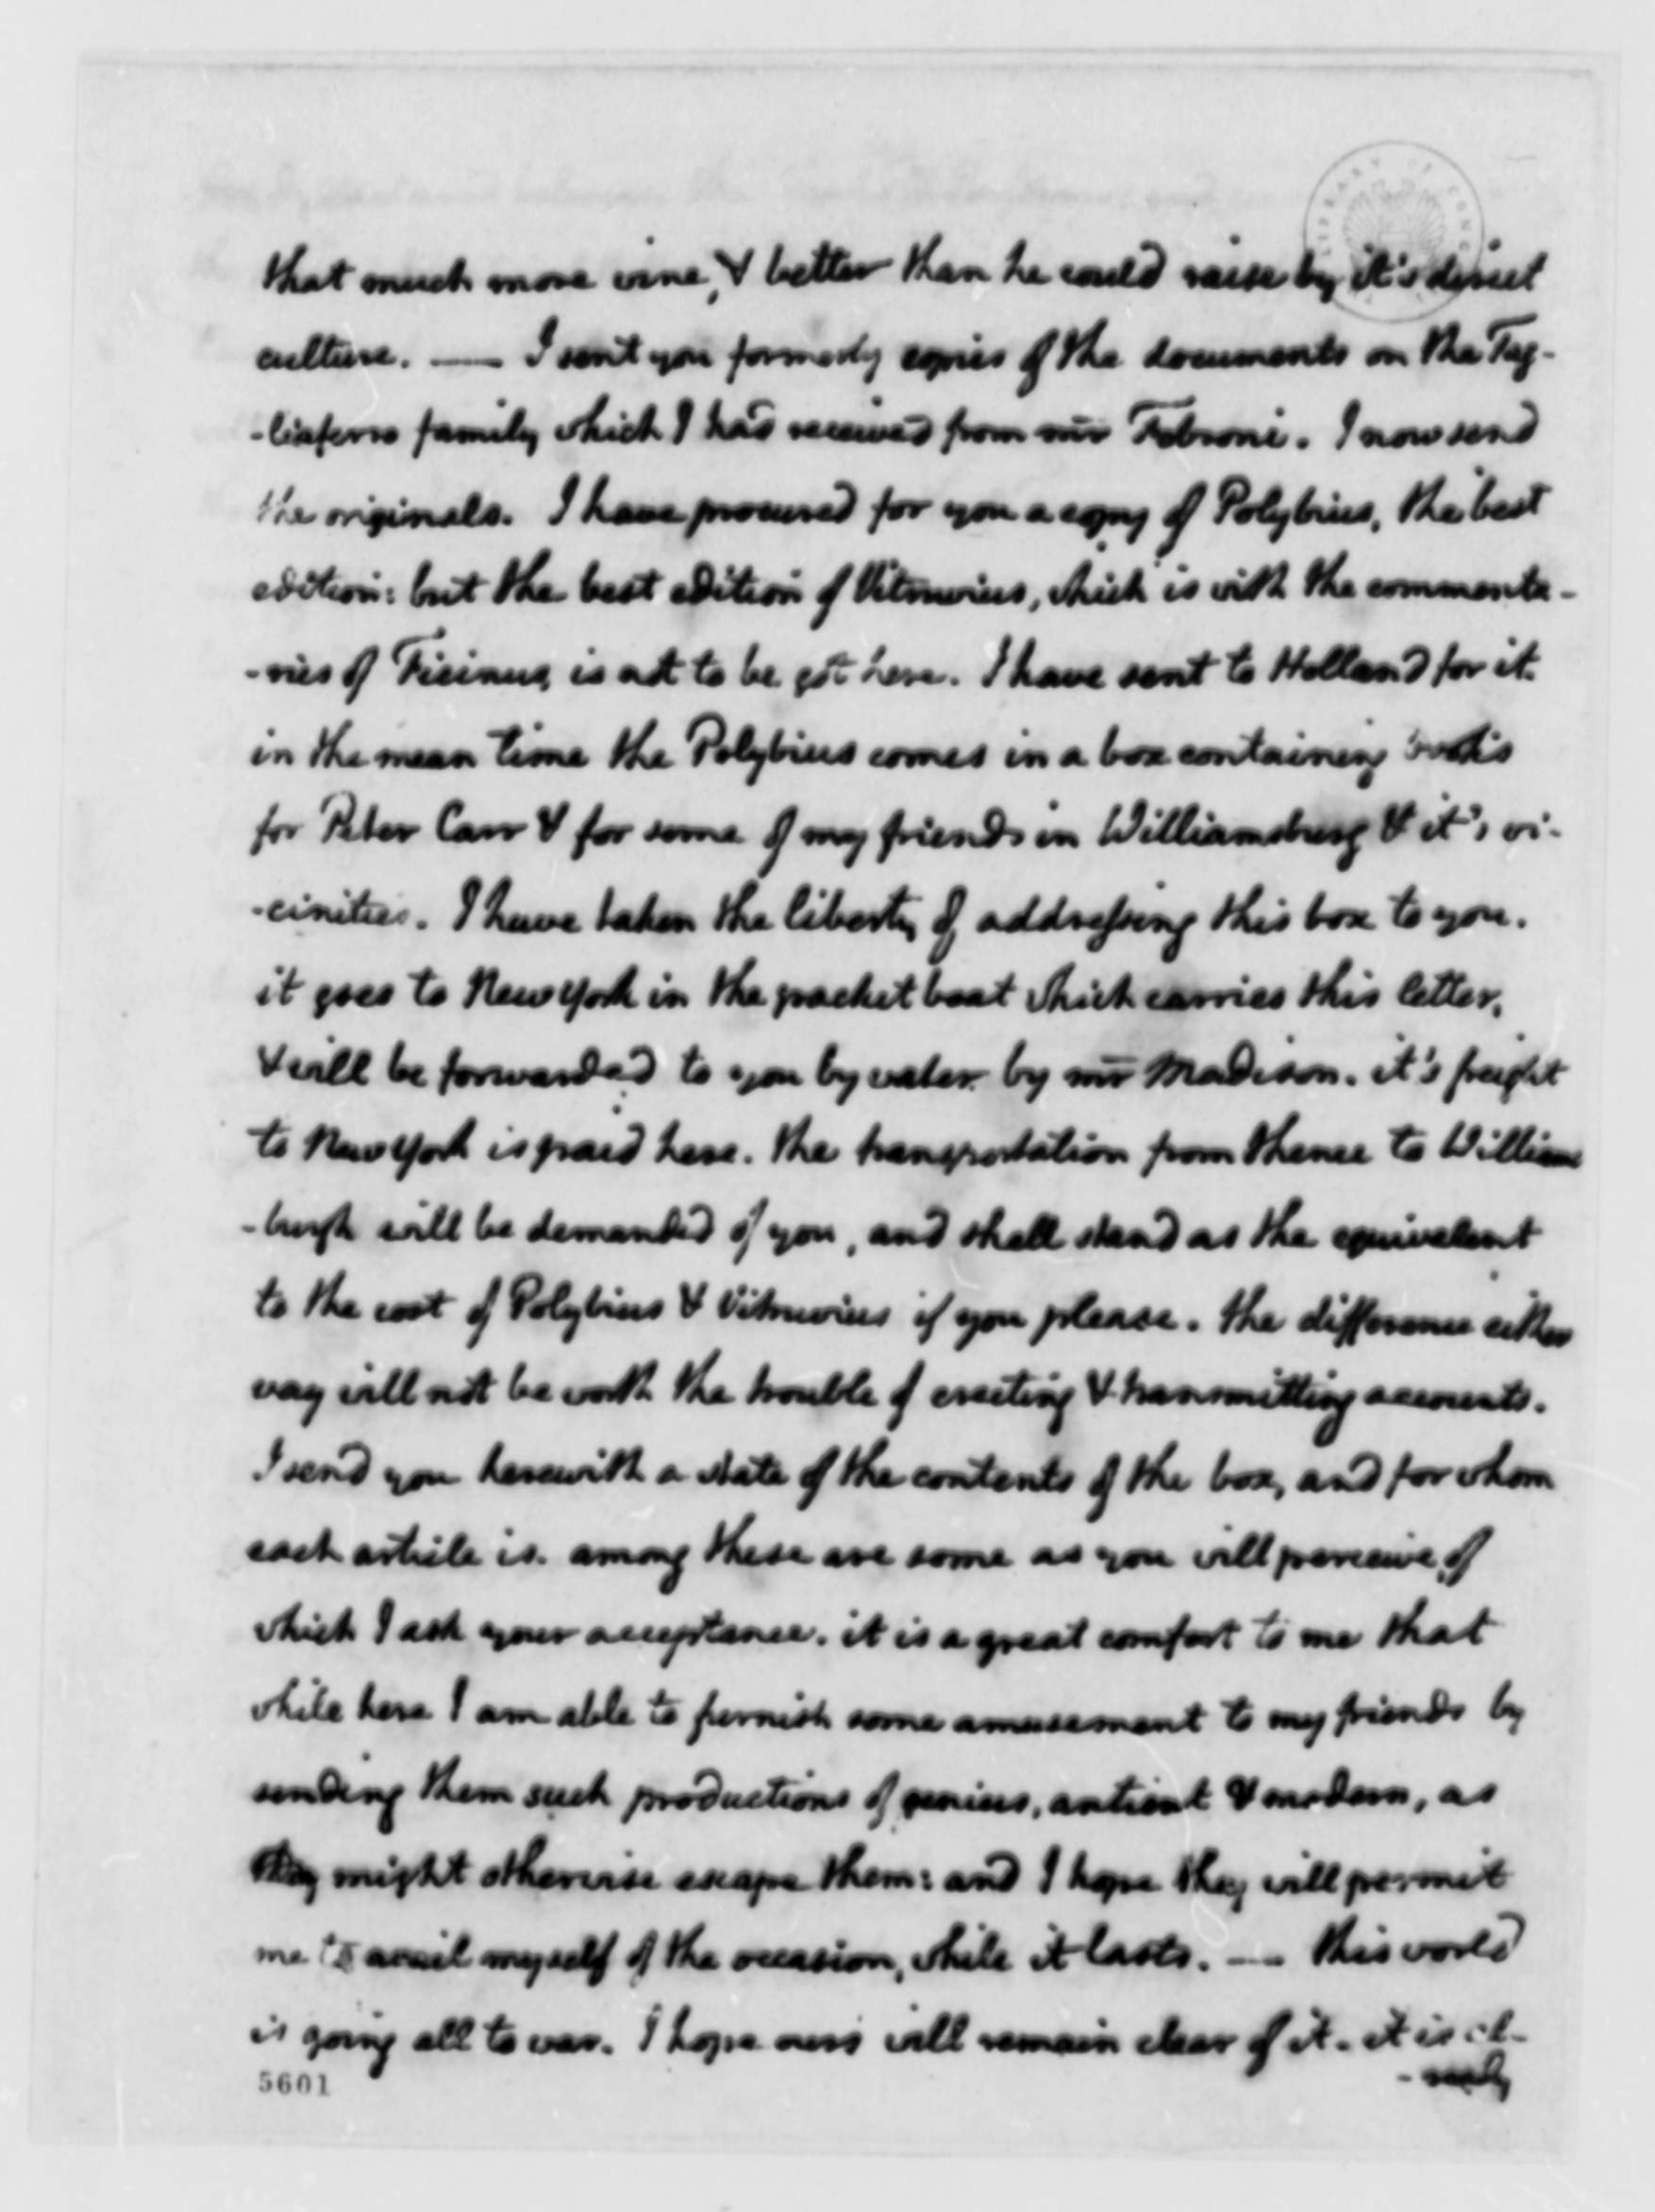 that much more wine, & better than he could raise by it's direct
culture. — I sent you formerly copies of the documents on the Tag-
-liaferro family which I had received from mr Febroni. I now send
the originals. I have procured for you a copy of Polybius, the best
edition: but the best edition of Vitruvius, which is with the commenta-
-ries of Ficinus, is not to be got here. I have sent to Holland for it.
in the mean time the Polybius comes in a box containing books
for Peter Carr & for some of my friends in Williamsburg & it's vi-
-cinities. I have taken the liberty of addressing this box to you.
it goes to New York in the packet boat which carries this letter,
& will be forwarded to you by water by mr Madison. it's freight
to New York is paid here. the transportation from thence to Williams
-burgh will be demanded of you, and shall stand as the equivalent
to the cost of Polybius & Vitruvius if you please. the difference either
way will not be worth the trouble of erecting & transmitting accounts.
I send you herewith a state of the contents of the box, and for whom
each article is. among these are some as you will perceive, of
which I ask your acceptance. it is a great comfort to me that
while here I am able to furnish some amusement to my friends by
sending them such productions of genius, antient & modern, as
might otherwise escape them: and I hope they will permit
me to avail myself of the occasion, while it lasts. — This world
is going all to war. I hope ours will remain clear of it. it is al-
-ready
5601
LIBRARY OF CONG